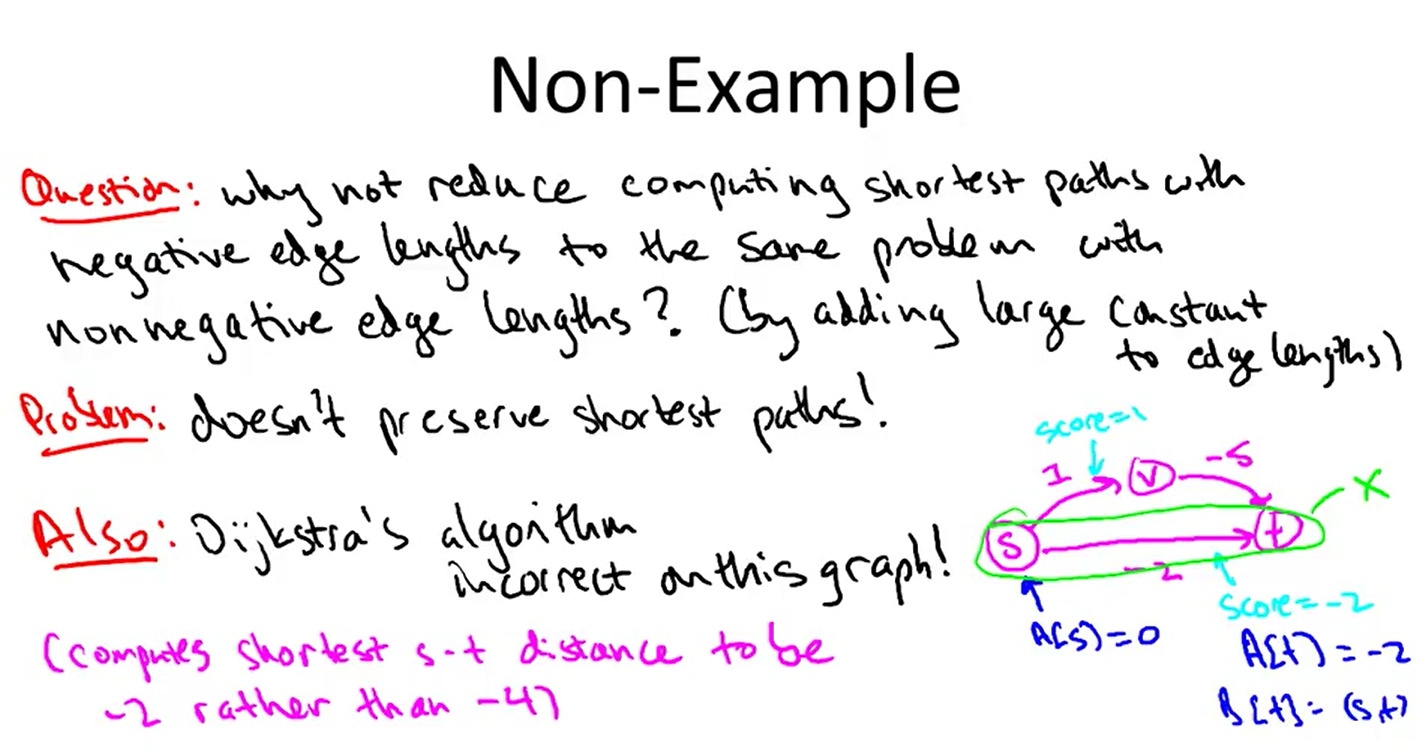 Non-Example
Question: why not reduce computing shortest paths with
negative edge lengths to the same problem with
nonnegative edge lengths? (by adding large constant
to edge lengths)
Problem: doesn't preserve shortest paths!
score=1
1 v -5
x
s t
-2
Also: Dijkstra's algorithm
incorrect on this graph!
score=-2
A[s]=0
A[t]=-2
B[t]=(s,t)
(computes shortest s-t distance to be
-2 rather than -4)